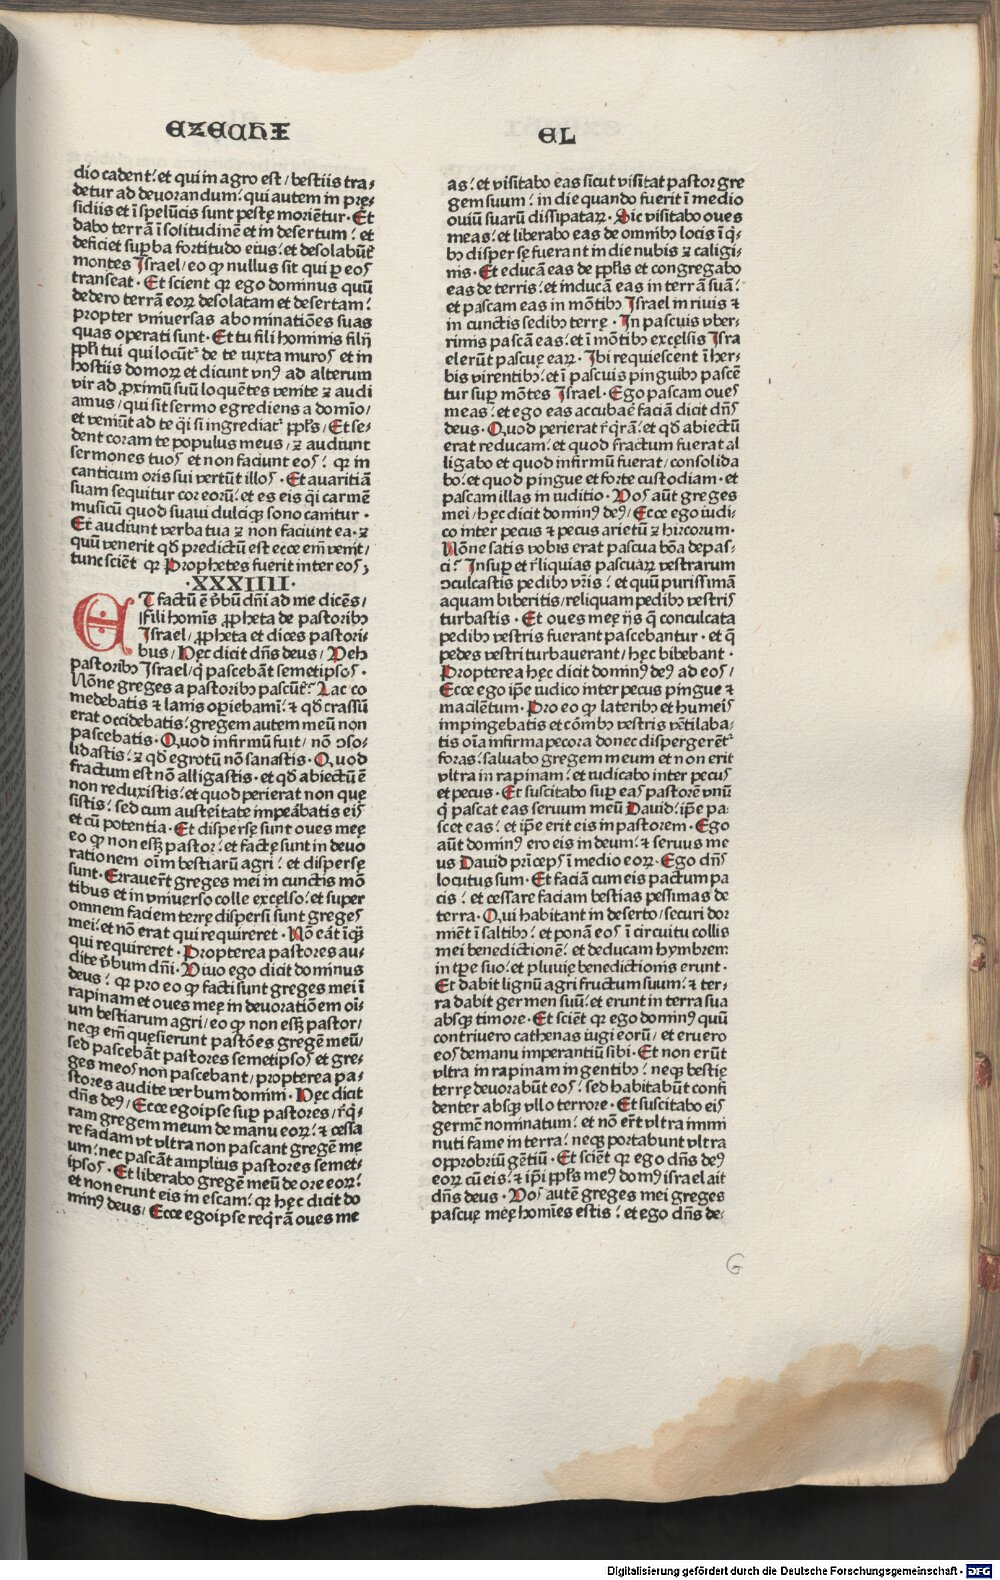 EZECHI
EL
dio cadent: et qui in agro est / bestiis tra-
detur ad deuorandum: qui autem in prę-
sidiis et ī spelūcis sunt pestę moriētur. Et
dabo terrā ī solitudinē et in desertum: et
deficiet suꝑba fortitudo eius: et desolabūt͛
montes Israel / eo ꝙ nullus sit qui ꝑ eos
transeat. Et scient qꝛ ego dominus quū
dedero terrā eoꝝ desolatam et desertam:
propter vniuersas abominatiōes suas
quas operati sunt. Et tu fili hominis filij
ppl̄i tui qui locūt͛ de te iuxta muros et in
hostiis domoꝝ et dicunt vnꝰ ad alterum
vir ad ꝓximū suū loquētes venite ⁊ audi
amus / qui sit sermo egrediens a domīo /
et veniūt ad te q̈i si ingrediat͛ ppl̄s / Et se-
dent coram te populus meus / ⁊ audiunt
sermones tuos et non faciunt eos: qꝛ in
canticum oris sui vertūt illos. Et auaritiā
suam sequitur cor eorū: et es eis q̈i carmē
musicū quod suaui dulciqꝫ sono canitur.
Et audiunt verba tua ⁊ non faciunt ea. ⁊
quū venerit qď predictū est ecce em̄ venit /
tunc sciēt qꝛ Prophetes fuerit inter eos;
.XXXIIII.
ET factū ē v̄bū dn̄i ad me dicēs /
Fili homīs ꝓpheta de pastoribꝫ
Israel / ꝓpheta et dices pastori-
bus / Hęc dicit dn̄s deus / Veh
pastoribꝫ Israel / q̇ pascebāt semetipsos.
Nōne greges a pastoribꝫ pascūt͛: Lac co
medebatis ⁊ lanis opiebamī: ⁊ qď crassū
erat occidebatis: gregem autem meū non
pascebatis. Quod infirmū fuit / nō ɔso-
lidastis: ⁊ qď egrotū nō sanastis. Quod
fractum est nō alligastis. et qď abiectū ē
non reduxistis: et quod perierat non quę
sistis: sed cum austeitate impeābatis eis
et cū potentia. Et dispersę sunt oues meę
eo ꝙ non essꝫ pastor: et factę sunt in deuo
rationem oīm bestiarū agri: et dispersę
sunt. Errauer̄t greges mei in cunctis mō
tibus et in vniuerso colle excelso: et super
omnem faciem terrę dispersi sunt greges
mei: et nō erat qui requireret. Nō eāt īqꝫ
qui requireret. Propterea pastores au-
dite v̄bum dn̄i. Viuo ego dicit dominus
deus: qꝛ pro eo ꝙ facti sunt greges mei ī
rapinam et oues meę in deuoratiōem oī-
um bestiarum agri / eo ꝙ non essꝫ pastor /
neqꝫ em̄ quęsierunt pastōes gregē meū /
sed pascebāt pastores semetipsos et gre-
ges meos non pascebant / propterea pa-
stores audite verbum domini. Hęc dicit
dn̄s deꝰ / Ecce ego ipse suꝑ pastores / r̄q̇-
ram gregem meum de manu eoꝝ: ⁊ cessa
re faciam vt vltra non pascant gregē me
um: nec pascāt amplius pastores semet-
ipsos. Et liberabo gregē meū de ore eoꝝ:
et non erunt eis in escam: qꝛ hęc dicit do
minꝰ deus / Ecce ego ipse req̇rā oues me
as: et visitabo eas sicut visitat pastor gre
gem suum: in die quando fuerit ī medio
ouiū suarū dissipataꝝ. Sic visitabo oues
meas: et liberabo eas de omnibꝫ locis ī q̇-
bꝫ dispersę fuerant in die nubis ⁊ caligi-
nis. Et educā eas de ppl̄is et congregabo
eas de terris: et inducā eas in terrā suā:
et pascam eas in mōtibꝫ Israel in riuis ⁊
in cunctis sedibꝫ terrę. In pascuis vber-
rimis pascā eas: et ī mōtibꝫ excęlsis Isra
el erūt pascuę eaꝝ. Ibi requiescent ī her-
bis virentibꝫ: et ī pascuis pinguibꝫ pascē
tur suꝑ mōtes Israel. Ego pascam oues
meas: et ego eas accubaē faciā dicit dn̄s
deus. Quod perierat r̄q̇rā: et qď abiectū
erat reducam: et quod fractum fuerat al
ligabo et quod infirmū fuerat / consolida
bo: et quod pingue et forte custodiam. et
pascam illas in iuditio. Vos aūt greges
mei / hęc dicit dominꝰ deꝰ / Ecce ego iudi-
co inter pecus ⁊ pecus arietū ⁊ hircorum.
Nōne satis vobis erat pascua bōa depas-
ci: Insuꝑ et r̄liquias pascuaꝝ vestrarum
ɔculcastis pedibꝫ vr̄is: et quū purissimā
aquam biberitis / reliquam pedibꝫ vestris
turbastis. Et oues meę ijs q̄ conculcata
pedibꝫ vestris fuerant pascebantur. et q̄
pedes vestri turbauerant / hęc bibebant.
Propterea hęc dicit dominꝰ deꝰ ad eos /
Ecce ego ip̄e iudico inter pecus pingue ⁊
macilētum. Pro eo ꝙ lateribꝫ et humeis
impingebatis et cōibꝫ vestris vētilaba-
tis oīa infirma pecora donec dispergerēt͛
foras: saluabo gregem meum et non erit
vltra in rapinam: et iudicabo inter pecus
et pecus. Et suscitabo suꝑ eas pastorē vnū
q̇ pascat eas seruum meū Dauid: ip̄e pa-
scet eas: et ip̄e erit eis in pastorem. Ego
aūt dominꝰ ero eis in deum: ⁊ seruus me
us Dauid prīceps ī medio eoꝝ. Ego dn̄s
locutus sum. Et faciā cum eis pactum pa
cis: et cessare faciam bestias pessimas de
terra. Qui habitant in deserto / securi dor
miēt ī saltibꝫ: et ponā eos ī circuitu collis
mei benedictionē: et deducam hymbrem
in tp̄e suo: et pluuię benedictionis erunt.
Et dabit lignū agri fructum suum: ⁊ ter-
ra dabit germen suū: et erunt in terra sua
absqꝫ timore. Et sciēt qꝛ ego dominꝰ quū
contriuero cathenas iugi eorū / et eruero
eos de manu imperantiū sibi. Et non erūt
vltra in rapinam in gentibꝫ: neqꝫ bestię
terrę deuorabūt eos: sed habitabūt confi
denter absqꝫ vllo terrore. Et suscitabo eis
germē nominatum: et nō er̄t vltra immi
nuti fame in terra: neqꝫ portabunt vltra
opprobriū gētiū. Et sciēt qꝛ ego dn̄s deꝰ
eoꝝ cū eis: ⁊ ip̄i ppl̄s meꝰ domꝰ israel ait
dn̄s deus. Vos autē greges mei greges
pascuę meę homīes estis: et ego dn̄s de-
G
Digitalisierung gefördert durch die Deutsche Forschungsgemeinschaft - DFG